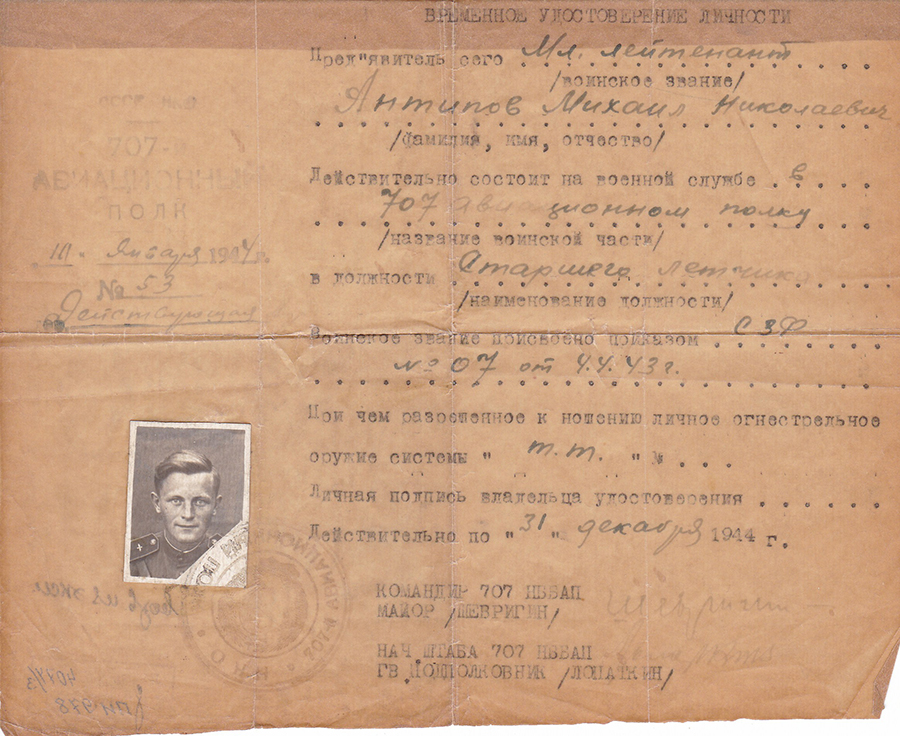 ВРЕМЕННОЕ УДОСТОВЕРЕНИЕ ЛИЧНОСТИ
Пред"явитель сего Мл. лейтенант
/воинское звание/
Антипов Михаил Николаевич
/фамилия, имя, отчество/
Действительно состоит на военной службе в
707 авиационном полку
/название воинской части/
в должности Старшего летчика
/наименование должности/
Воинское звание присвоено приказом СЗФ
№ 07 от 4.4.43г.
При чем разрешенное к ношению личное огнестрельное
оружие системы " т.т. " №
Личная подпись владельца удостоверения
Действительно по "31" декабря 1944 г.
КОМАНДИР 707 НБВАП
МАЙОР /ШЕВРИГИН/
НАЧ ШТАБА 707 НБВАП
ГВ ПОДПОЛКОВНИК /ЛОПАТКИН/
СССР НКО
707-
АВИАЦИОННЫЙ
ПОЛК
Января 1944 г.
№ 53
Действующая